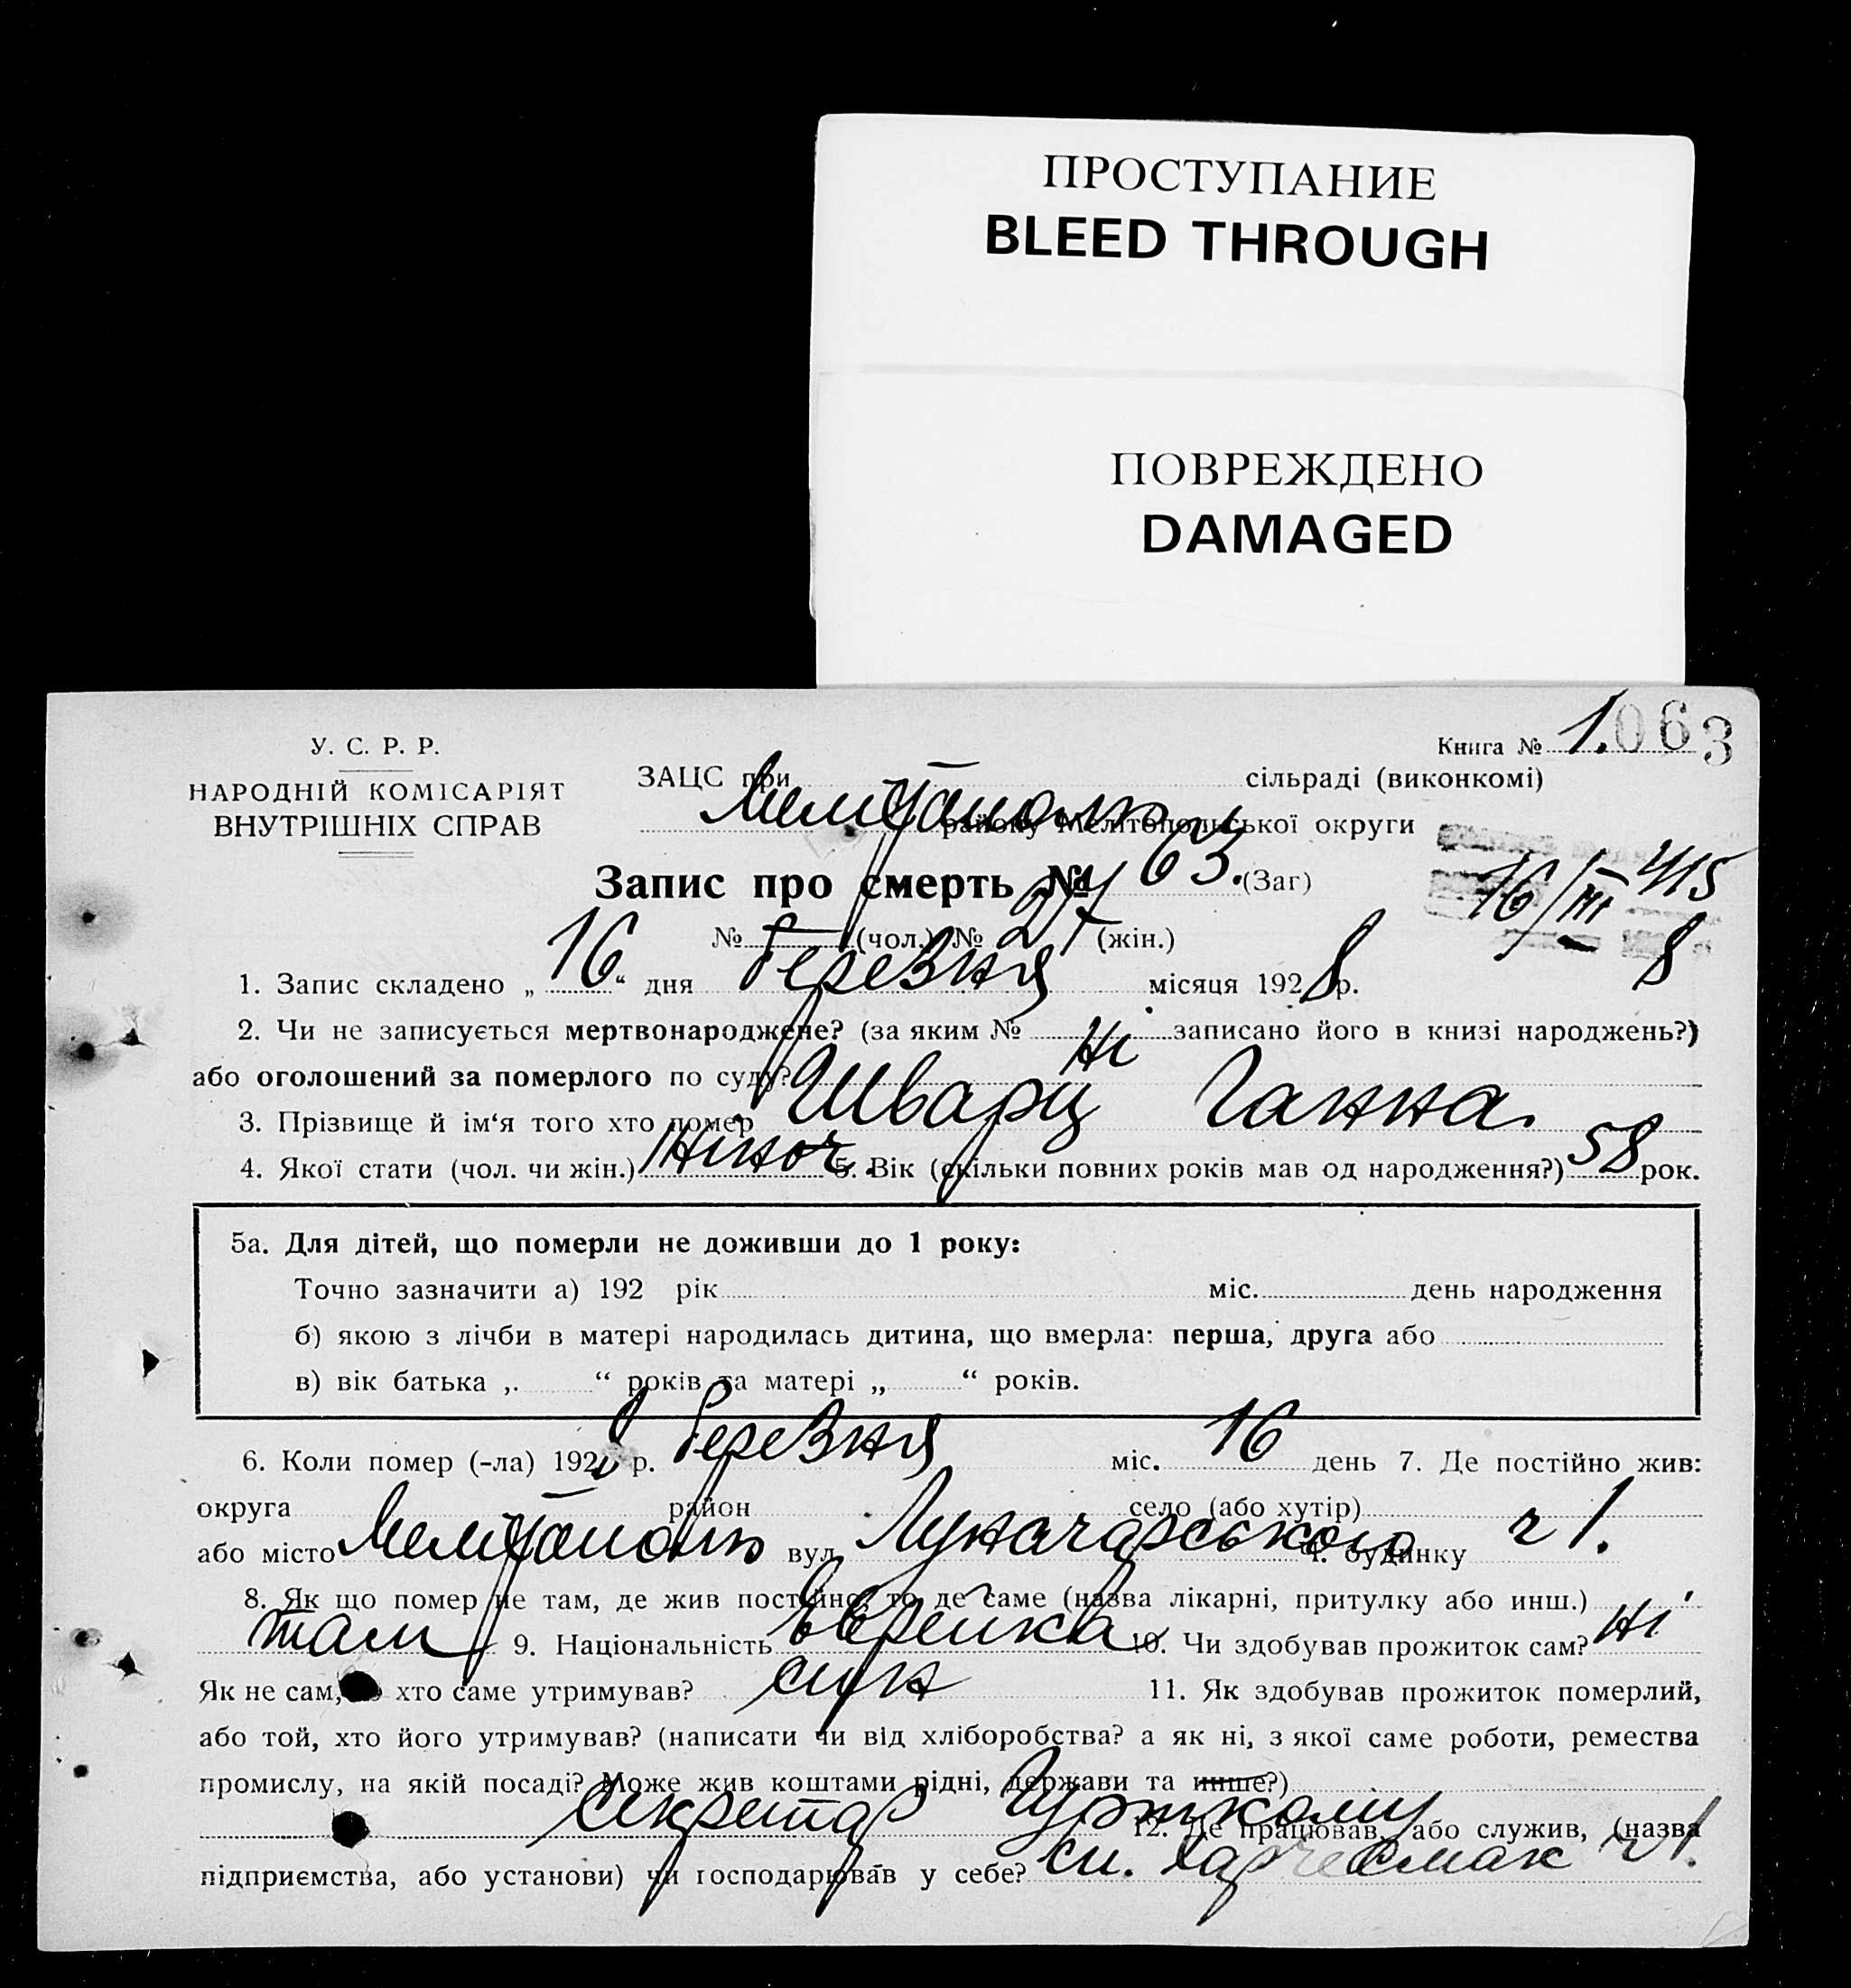 ПРОСТУПАНИЕ
BLEED THROUGH
ПОВРЕЖДЕНО
DAMAGED
У. С. Р. Р.
НАРОДНІЙ КОМІСАРІЯТ
ВНУТРІШНІХ СПРАВ
Книга № 1. 063
ЗАЦС при сільраді (виконкомі)
Мелітополь району Мелітопольської округи
Запис про смерть № 63. (Заг)
16/III 415
8
№ — (чол.) № 27 (жін.)
1. Запис складено „ 16 “ дня березня місяця 1928 р.
2. Чи не записується мертвонароджене? (за яким № ні записано його в книзі народжень?)
або оголошений за померлого по суду?
3. Прізвище й ім‘я того хто помер Шварц Ганна.
4. Якої стати (чол. чи жін.) Жіноч. 5. Вік (скільки повних років мав од народження?) 58 рок.
5а. Для дітей, що померли не доживши до 1 року:
Точно зазначити а) 192 рік міс. день народження
б) якою з лічби в матері народилась дитина, що вмерла: перша, друга або
в) вік батька „ “ років та матері „ “ років.
6. Коли помер (-ла) 1928 р. березня міс. 16 день 7. Де постійно жив:
округа район село (або хутір)
або місто Мелітополь вул. Луначарського ч. будинку ч 1.
8. Як що помер не там, де жив постійно, то де саме (назва лікарні, притулку або инш.)
там 9. Національність Єврейка 10. Чи здобував прожиток сам? ні
Як не сам, хто саме утримував? син 11. Як здобував прожиток померлий,
або той, хто його утримував? (написати чи від хліборобства? а як ні, з якої саме роботи, ремества
промислу, на якій посаді? Може жив коштами рідні, держави та инше?)
секретар 12. Де працював, або служив, (назва
підприємства, або установи) чи господарював у себе? сп. Харчесмак ч 1.